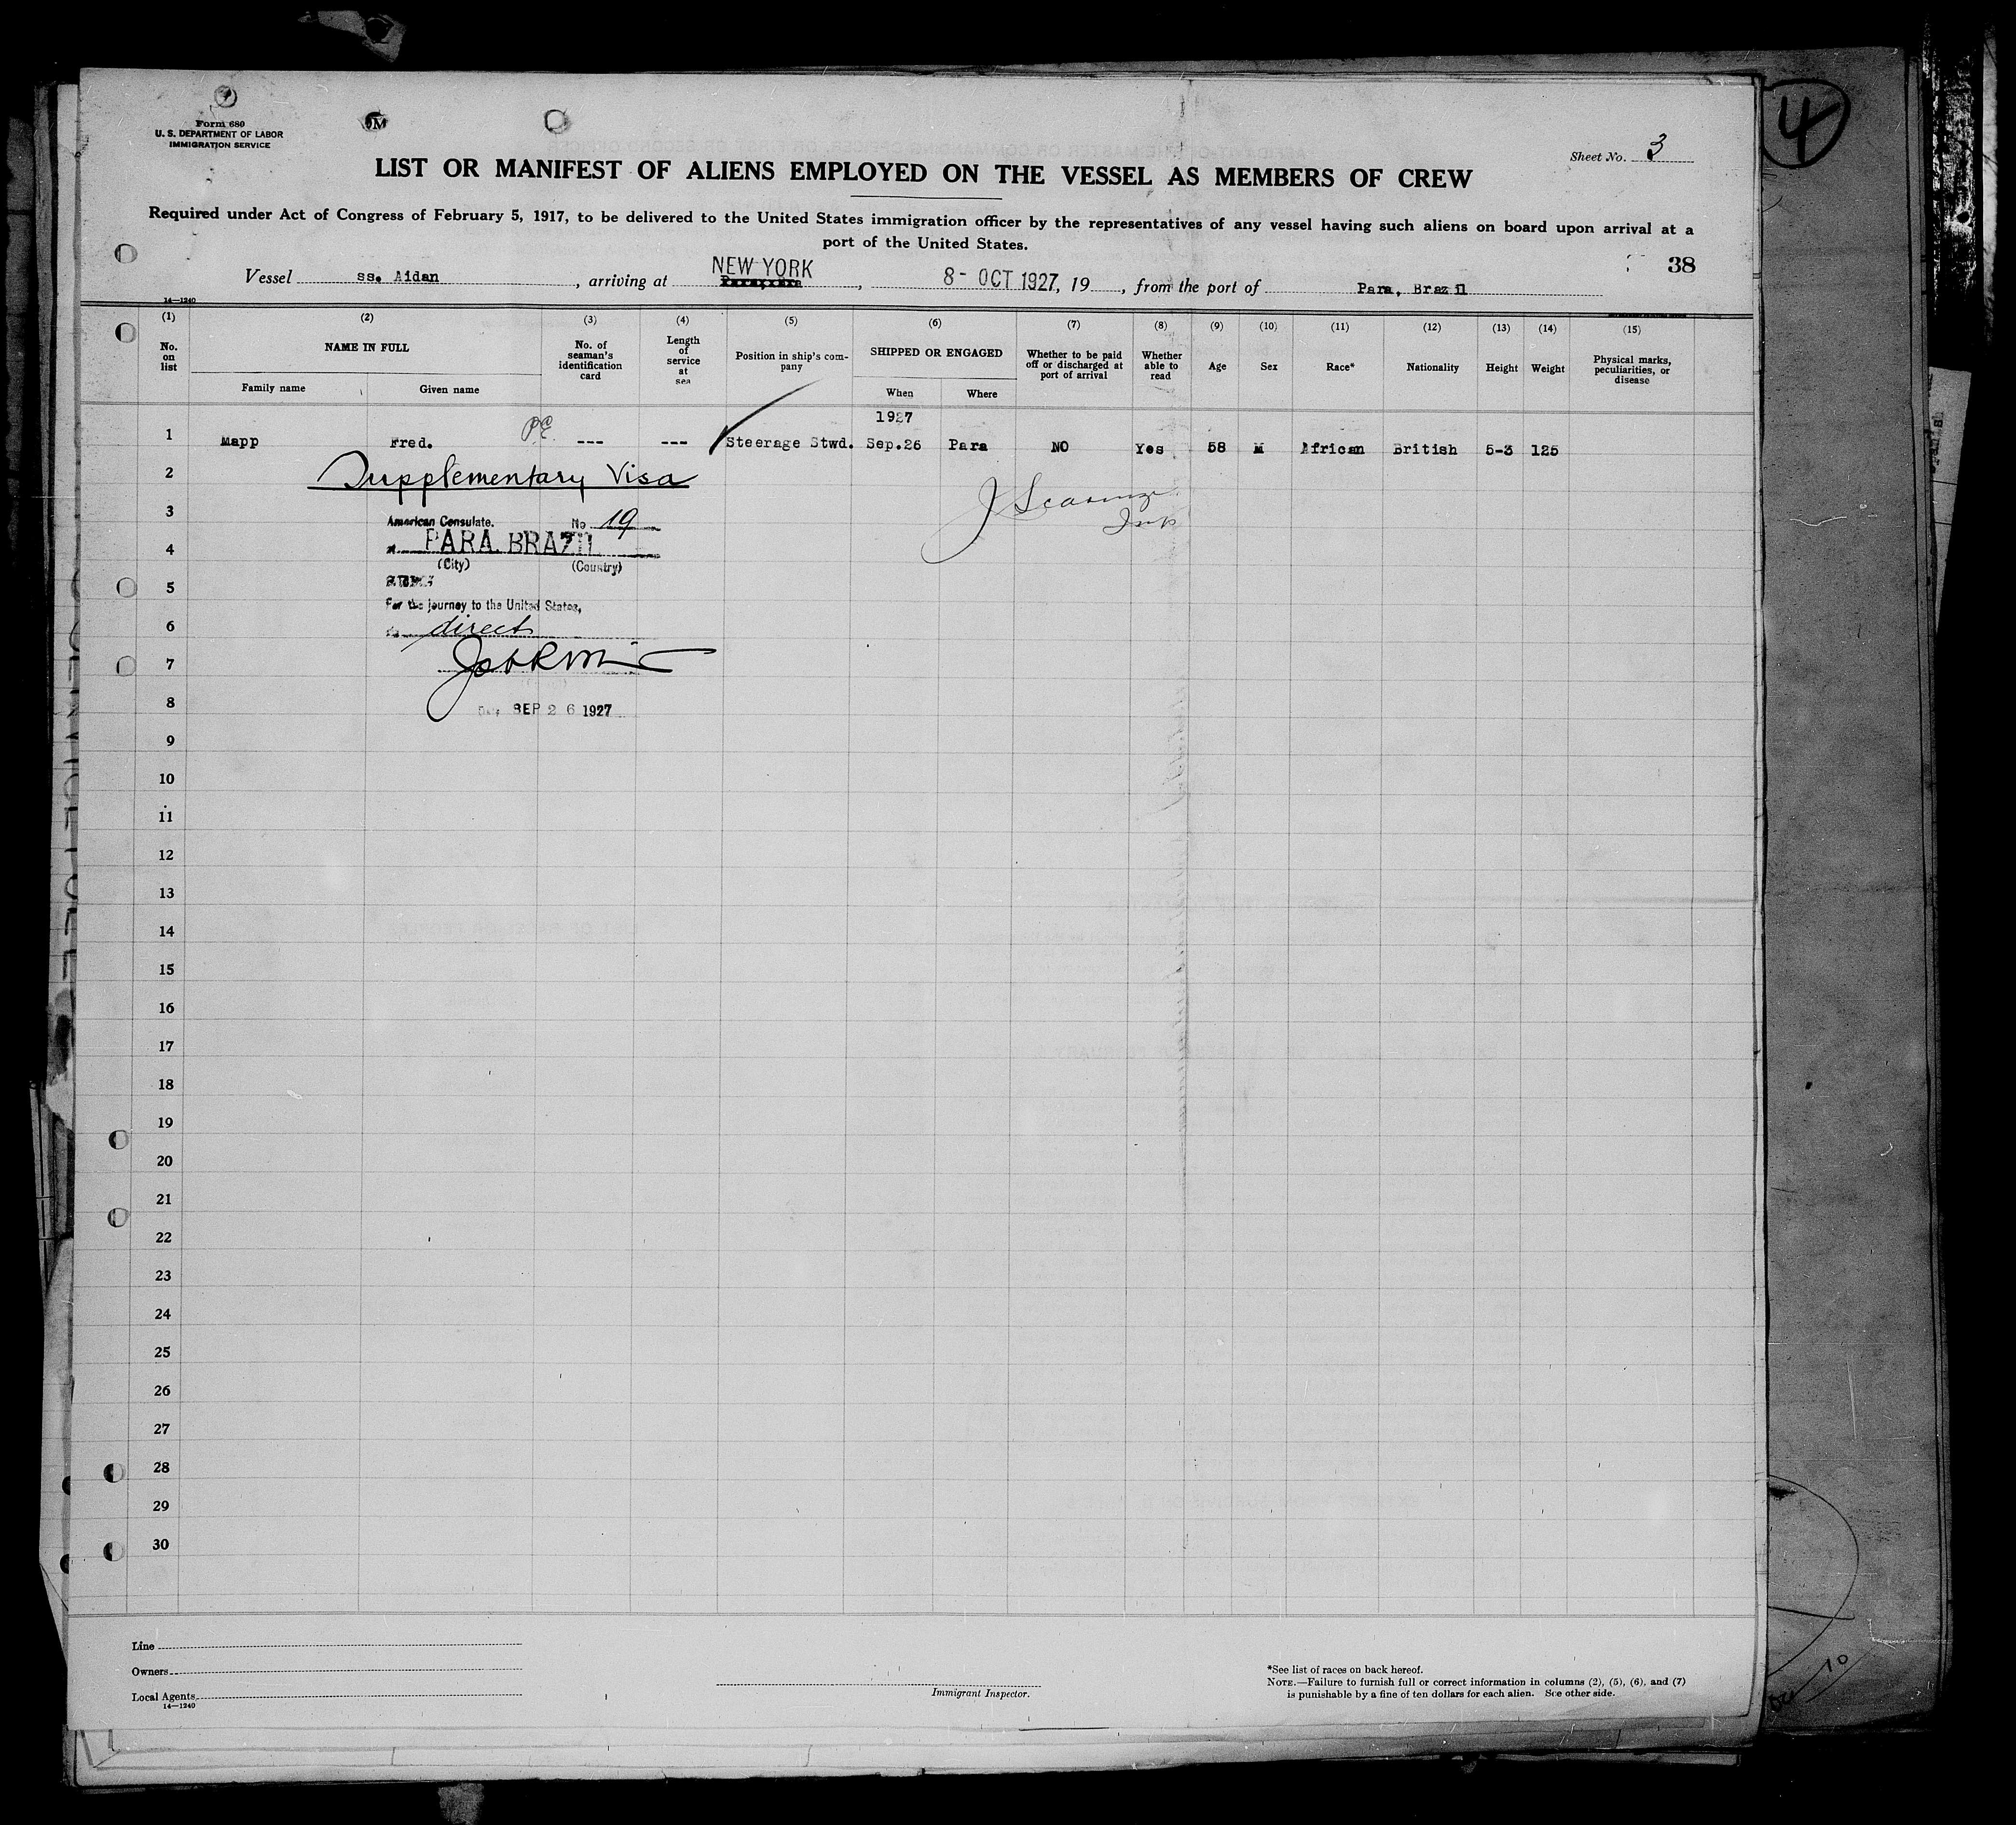 Form 680
U. S. DEPARTMENT OF LABOR
IMMIGRATION SERVICE
M
4
Sheet No. 3
LIST OR MANIFEST OF ALIENS EMPLOYED ON THE VESSEL AS MEMBERS OF CREW
Required under Act of Congress of February 5, 1917, to be delivered to the United States immigration officer by the representatives of any vessel having such aliens on board upon arrival at a
port of the United States.
38
Vessel ss. Aidan, arriving at NEW YORK, 8- OCT 1927, 19, from the port of Para, Brazil
14—1240
(1) (2) (3) (4) (5) (6) (7) (8) (9) (10) (11) (12) (13) (14) (15)
No. on list
NAME IN FULL
Family name Given name
No. of seaman's identification card
Length of service at sea
Position in ship's company
SHIPPED OR ENGAGED
When Where
Whether to be paid off or discharged at port of arrival
Whether able to read
Age
Sex
Race*
Nationality
Height
Weight
Physical marks, peculiarities, or disease
1927
1 Mapp Fred. --- --- Steerage Stwd. Sep.26 Para NO Yes 58 M African British 5-3 125
2 Supplementary Visa
3
American Consulate. No 19
4 PARA. BRAZIL
(City) (Country)
5
For the journey to the United States,
6 direct
7
8 SEP 26 1927
9
10
11
12
13
14
15
16
17
18
19
20
21
22
23
24
25
26
27
28
29
30
Line
Owners
Local Agents
14—1240
Immigrant Inspector.
*See list of races on back hereof.
NOTE.—Failure to furnish full or correct information in columns (2), (5), (6), and (7)
is punishable by a fine of ten dollars for each alien. See other side.
10